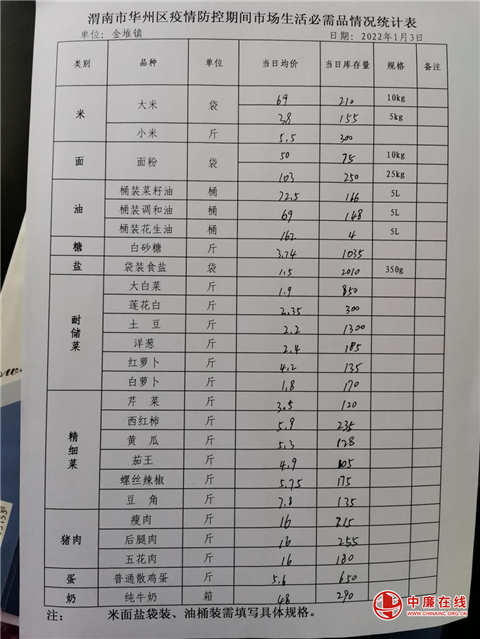 渭南市华州区疫情防控期间市场生活必需品情况统计表
单位：金堆镇 日期：2022年1月3日
类别 品种 单位 当日均价 当日库存量 规格 备注
米 大米 袋 69 210 10kg
38 155 5kg
小米 斤 5.5 300
面 面粉 袋 50 75 10kg
103 250 25kg
油 桶装菜籽油 桶 72.5 166 5L
桶装调和油 桶 69 148 5L
桶装花生油 桶 162 4 5L
糖 白砂糖 斤 3.74 1035
盐 袋装食盐 袋 1.5 2010 350g
耐储菜 大白菜 斤 1.9 850
莲花白 斤 2.35 300
土豆 斤 2.2 1300
洋葱 斤 2.4 185
红萝卜 斤 4.2 135
白萝卜 斤 1.8 170
精细菜 芹菜 斤 3.5 120
西红柿 斤 5.9 235
黄瓜 斤 5.3 128
茄王 斤 4.9 105
螺丝辣椒 斤 5.75 175
豆角 斤 7.8 135
猪肉 瘦肉 斤 16 215
后腿肉 斤 16 255
五花肉 斤 16 180
蛋 普通散鸡蛋 斤 5.6 650
奶 纯牛奶 箱 48 290
注： 米面盐袋装、油桶装需填写具体规格。
中廉在线
WWW.CHINAINC.ORG.CN